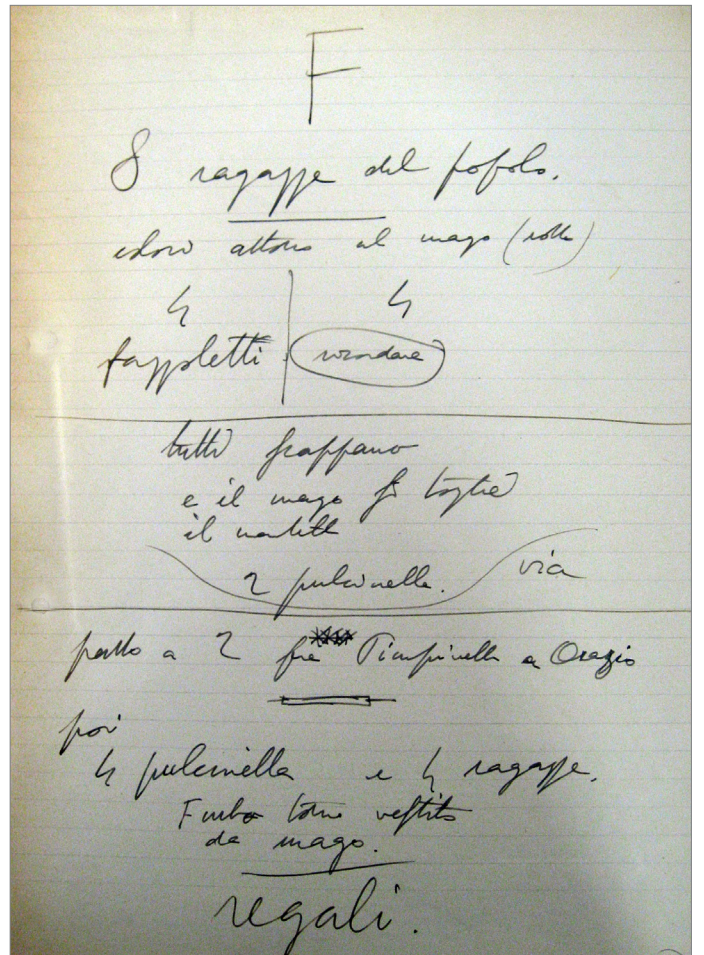 F
8 ragazze del popolo.
attorno al mago (
4 4
fazzoletti
tutti scappano
e il mago si toglie
il
2 pulcinelle. via
passo a 2 fra Piampinella e Orazio
poi
4 pulcinella e 4 ragazze.
Furbo torna vestito
da mago.
regali.